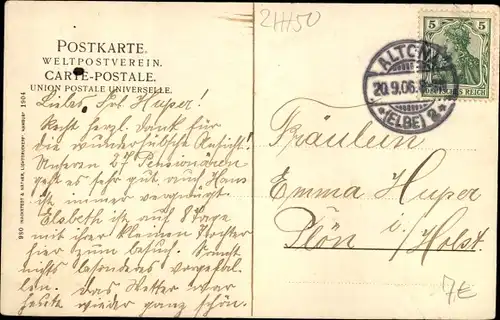 24450
POSTKARTE.
WELTPOSTVEREIN.
CARTE-POSTALE.
UNION POSTALE UNIVERSELLE.
Liebes Frl. Huper!
Recht herzl. Dank für
die wunderhübsche Ansicht!
Unseren 27 Pensionären
geht es sehr gut, auch Hans
ist immer vergnügt.
Elsbeth ist auf 8 Tage
mit ihrer kleinen Tochter
hier zum Besuch. Sonst
nichts besonderes vorgefal-
len. Das Wetter war
heute wieder ganz schön.
950 KNACKSTEDT & NÄTHER, LICHTDRUCKEREI, HAMBURG 1904
5 5
DEUTSCHES REICH
ALTONA
20.9.06.
*(ELBE) 2*
Fräulein
Emma Huper
Plön i./Holst.
7€